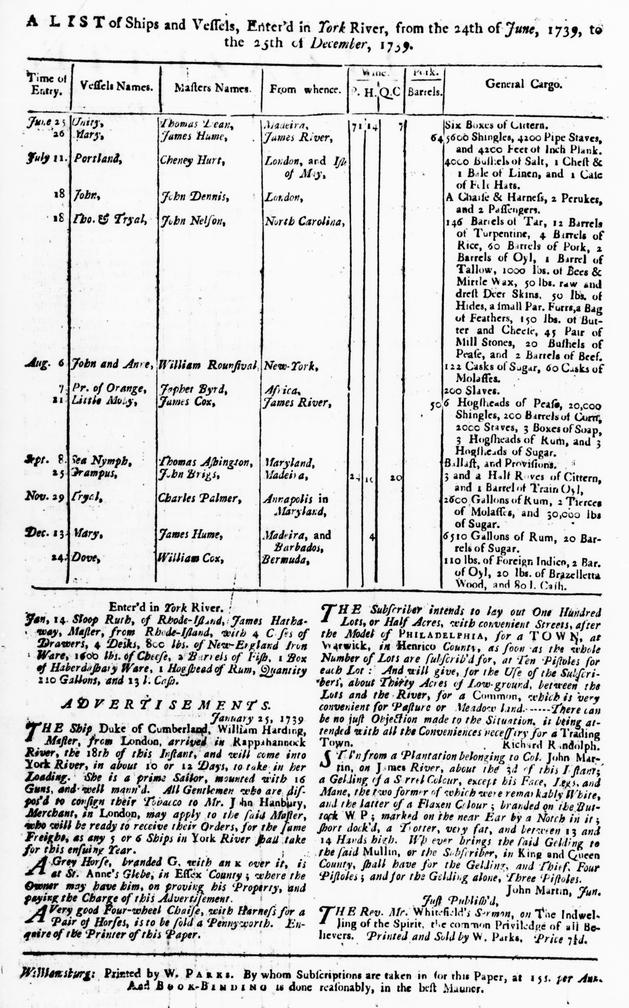 A LIST of Ships and Veſſels, Enter'd in York River, from the 24th of June, 1739, to
the 25th of December, 1739.
Time of Entry. Veſſels Names. Maſters Names. From whence. Wine. P. H. Q.C Pork. Barrels. General Cargo.
June 25 Unity, Thomas Dean, Madeira, 71 14 7 Six Boxes of Cittern.
26 Mary, James Hume, James River, 64 5600 Shingles, 4200 Pipe Staves,
and 4200 Feet of Inch Plank.
July 11. Portland, Cheney Hurt, London, and Iſle 4000 Buſhels of Salt, 1 Cheſt &
of May, 1 Bale of Linen, and 1 Caſe
of Felt Hats.
18 John, John Dennis, London, A Chaiſe & Harneſs, 2 Perukes,
and 2 Paſſengers.
18 Tho. & Tryal, John Nelſon, North Carolina, 146 Barrels of Tar, 12 Barrels
of Turpentine, 4 Barrels of
Rice, 60 Barrels of Pork, 2
Barrels of Oyl, 1 Barrel of
Tallow, 1000 lbs. of Bees &
Mirtle Wax, 50 lbs. raw and
dreſt Deer Skins. 50 lbs. of
Hides, a ſmall Par. Furrs, a Bag
of Feathers, 150 lbs. of But-
ter and Cheeſe, 45 Pair of
Mill Stones, 20 Buſhels of
Peaſe, and 2 Barrels of Beef.
Aug. 6 John and Anne, William Rounſival, New-York, 122 Casks of Sugar, 60 Casks of
Molaſſes.
7 Pr. of Orange, Japhet Byrd, Africa, 200 Slaves.
21 Little Molly, James Cox, James River, 50 6 Hogſheads of Peaſe, 20,000
Shingles, 200 Barrels of Corn,
2000 Staves, 3 Boxes of Soap,
3 Hogſheads of Rum, and 3
Hogſheads of Sugar.
Sept. 8. Sea Nymph, Thomas Aſhington, Maryland, Ballaſt, and Proviſions.
25 Grampus, John Brigs, Madeira, 20 3 and a Half Roves of Cittern,
and 1 Barrel of Train Oyl,
Nov. 29 Tryal, Charles Palmer, Annapolis in 2600 Gallons of Rum, 2 Tierces
Maryland, of Molaſſes, and 30,000 lbs
of Sugar.
Dec. 13 Mary, James Hume, Madeira, and 4 6510 Gallons of Rum, 20 Bar-
Barbados, rels of Sugar.
24 Dove, William Cox, Bermuda, 110 lbs. of Foreign Indico, 2 Bar.
of Oyl, 20 lbs. of Brazelletta
Wood, and 80 l. Caſh.
Enter'd in York River.
Jan, 14. Sloop Ruth, of Rhode-Iſland, James Hatha-
way, Maſter, from Rhode-Iſland, with 4 Caſes of
Drawers, 4 Desks, 800 lbs. of New-England Iron
Ware, 1600 lbs. of Cheeſe, 2 Barrels of Fiſh, 1 Box
of Haberdaſhary Ware, 1 Hogſhead of Rum, Quantity
210 Gallons, and 13 l. Caſh.
ADVERTISEMENTS.
January 25, 1739
THE Ship Duke of Cumberland, William Harding,
Maſter, from London, arrived in Rappahannock
River, the 18th of this Inſtant, and will come into
York River, in about 10 or 12 Days, to take in her
Loading. She is a prime Sailor, mounted with 16
Guns, and well mann'd. All Gentlemen who are diſ-
pos'd to conſign their Tobacco to Mr. John Hanbury,
Merchant, in London, may apply to the ſaid Maſter,
who will be ready to receive their Orders, for the ſame
Freight, as any 5 or 6 Ships in York River ſhall take
for this enſuing Year.
A Grey Horſe, branded G, with an x over it, is
at St. Anne's Glebe, in Eſſex County; where the
Owner may have him, on proving his Property, and
paying the Charge of this Advertiſement.
A Very good Four-wheel Chaiſe, with Harneſs for a
Pair of Horſes, is to be ſold a Pennyworth. En-
quire of the Printer of this Paper.
THE Subſcriber intends to lay out One Hundred
Lots, or Half Acres, with convenient Streets, after
the Model of PHILADELPHIA, for a TOWN, at
Warwick, in Henrico County, as ſoon as the whole
Number of Lots are ſubſcrib'd for, at Ten Piſtoles for
each Lot: And will give, for the Uſe of the Subſcri-
bers, about Thirty Acres of Low-ground, between the
Lots and the River, for a Common, which is very
convenient for Paſture or Meadow land.-----There can
be no juſt Objection made to the Situation, it being at-
tended with all the Conveniences neceſſary for a Trading
Town. Richard Randolph.
STol'n from a Plantation belonging to Col. John Mar-
tin, on James River, about the 3d of this Inſtant;
a Gelding of a Sorrel Colour, except his Face, Legs, and
Mane, the two former of which were remarkably White,
and the latter of a Flaxen Colour; branded on the But-
tock WP; marked on the near Ear by a Notch in it;
ſhort dock'd, a Trotter, very fat, and between 13 and
14 Hands high. Who ever brings the ſaid Gelding to
the ſaid Mullin, or the Subſcriber, in King and Queen
County, ſhall have for the Gelding, and Thief, Four
Piſtoles; and for the Gelding alone, Three Piſtoles.
John Martin, Jun.
Juſt Publiſh'd,
THE Rev. Mr. Whitefield's Sermon, on The Indwel-
ling of the Spirit, the common Priviledge of all Be-
lievers. Printed and Sold by W. Parks. Price 7½d.
Williamsburg: Printed by W. PARKS. By whom Subſcriptions are taken in for this Paper, at 15s. per Ann.
And BOOK-BINDING is done reaſonably, in the beſt Manner.